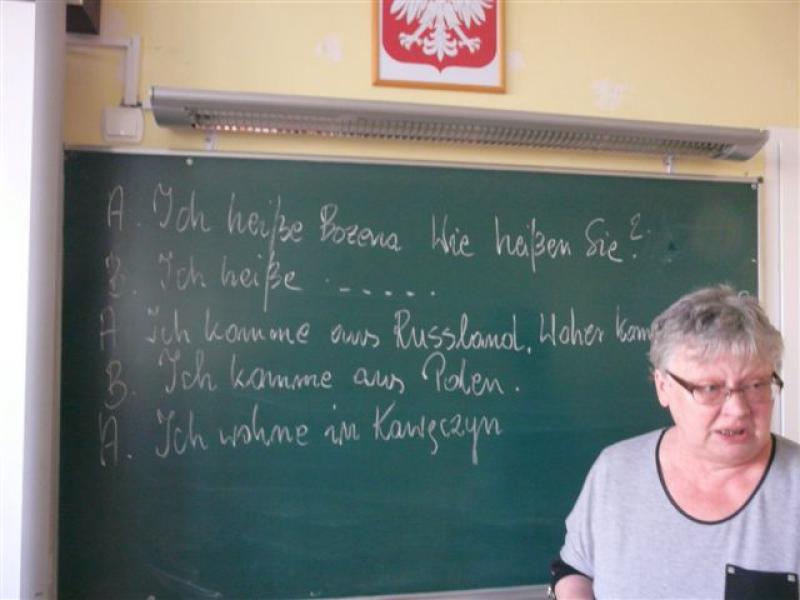 A. Ich heiße Bożena Wie heißen Sie?
B. Ich heiße . - - - - .
A Ich komme aus Russland. Woher kom
B. Ich komme aus Polen.
A. Ich wohne in Kawęczyn